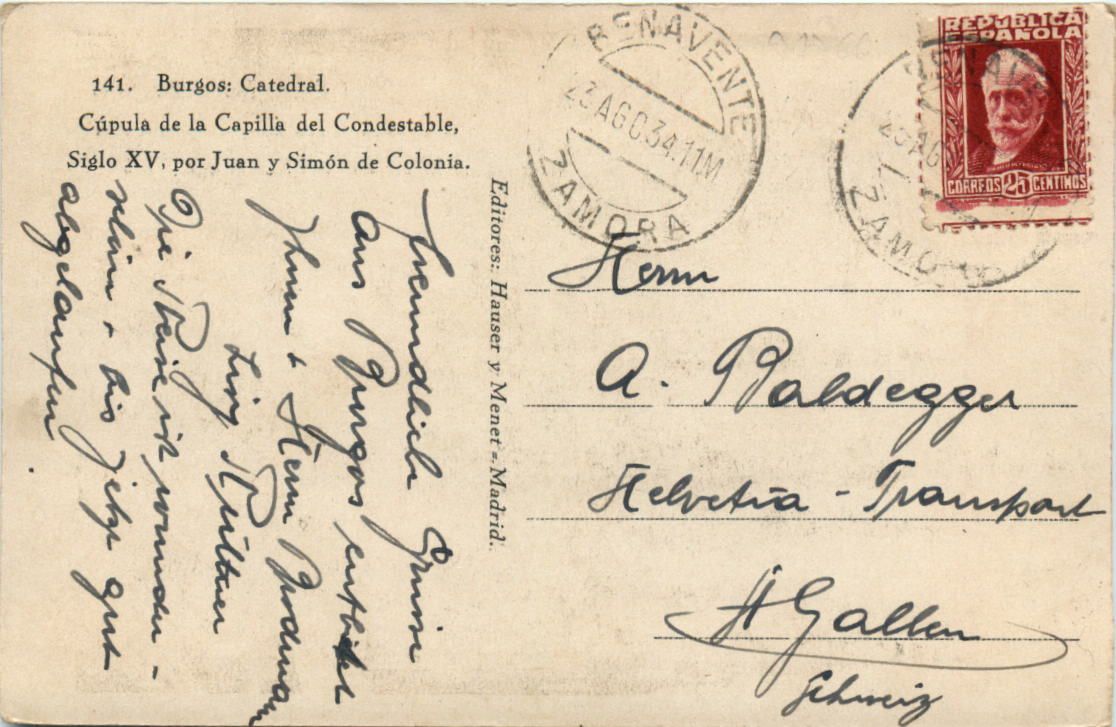 141. Burgos: Catedral.
Cúpula de la Capilla del Condestable,
Siglo XV, por Juan y Simón de Colonia.
Editores: Hauser y Menet - Madrid.
BENAVENTE
23 AGO 34. 11M
ZAMORA
REPUBLICA
ESPAÑOLA
CORREOS 25 CENTIMOS
Freundliche Grüsse
aus Burgos entbietet
Ihnen + Herrn
Die Reise ist wunder-
schön + bis jetzt gut
abgelaufen.
Herrn
A. Baldegger
Helvetia - Transport
St Gallen
Schweiz